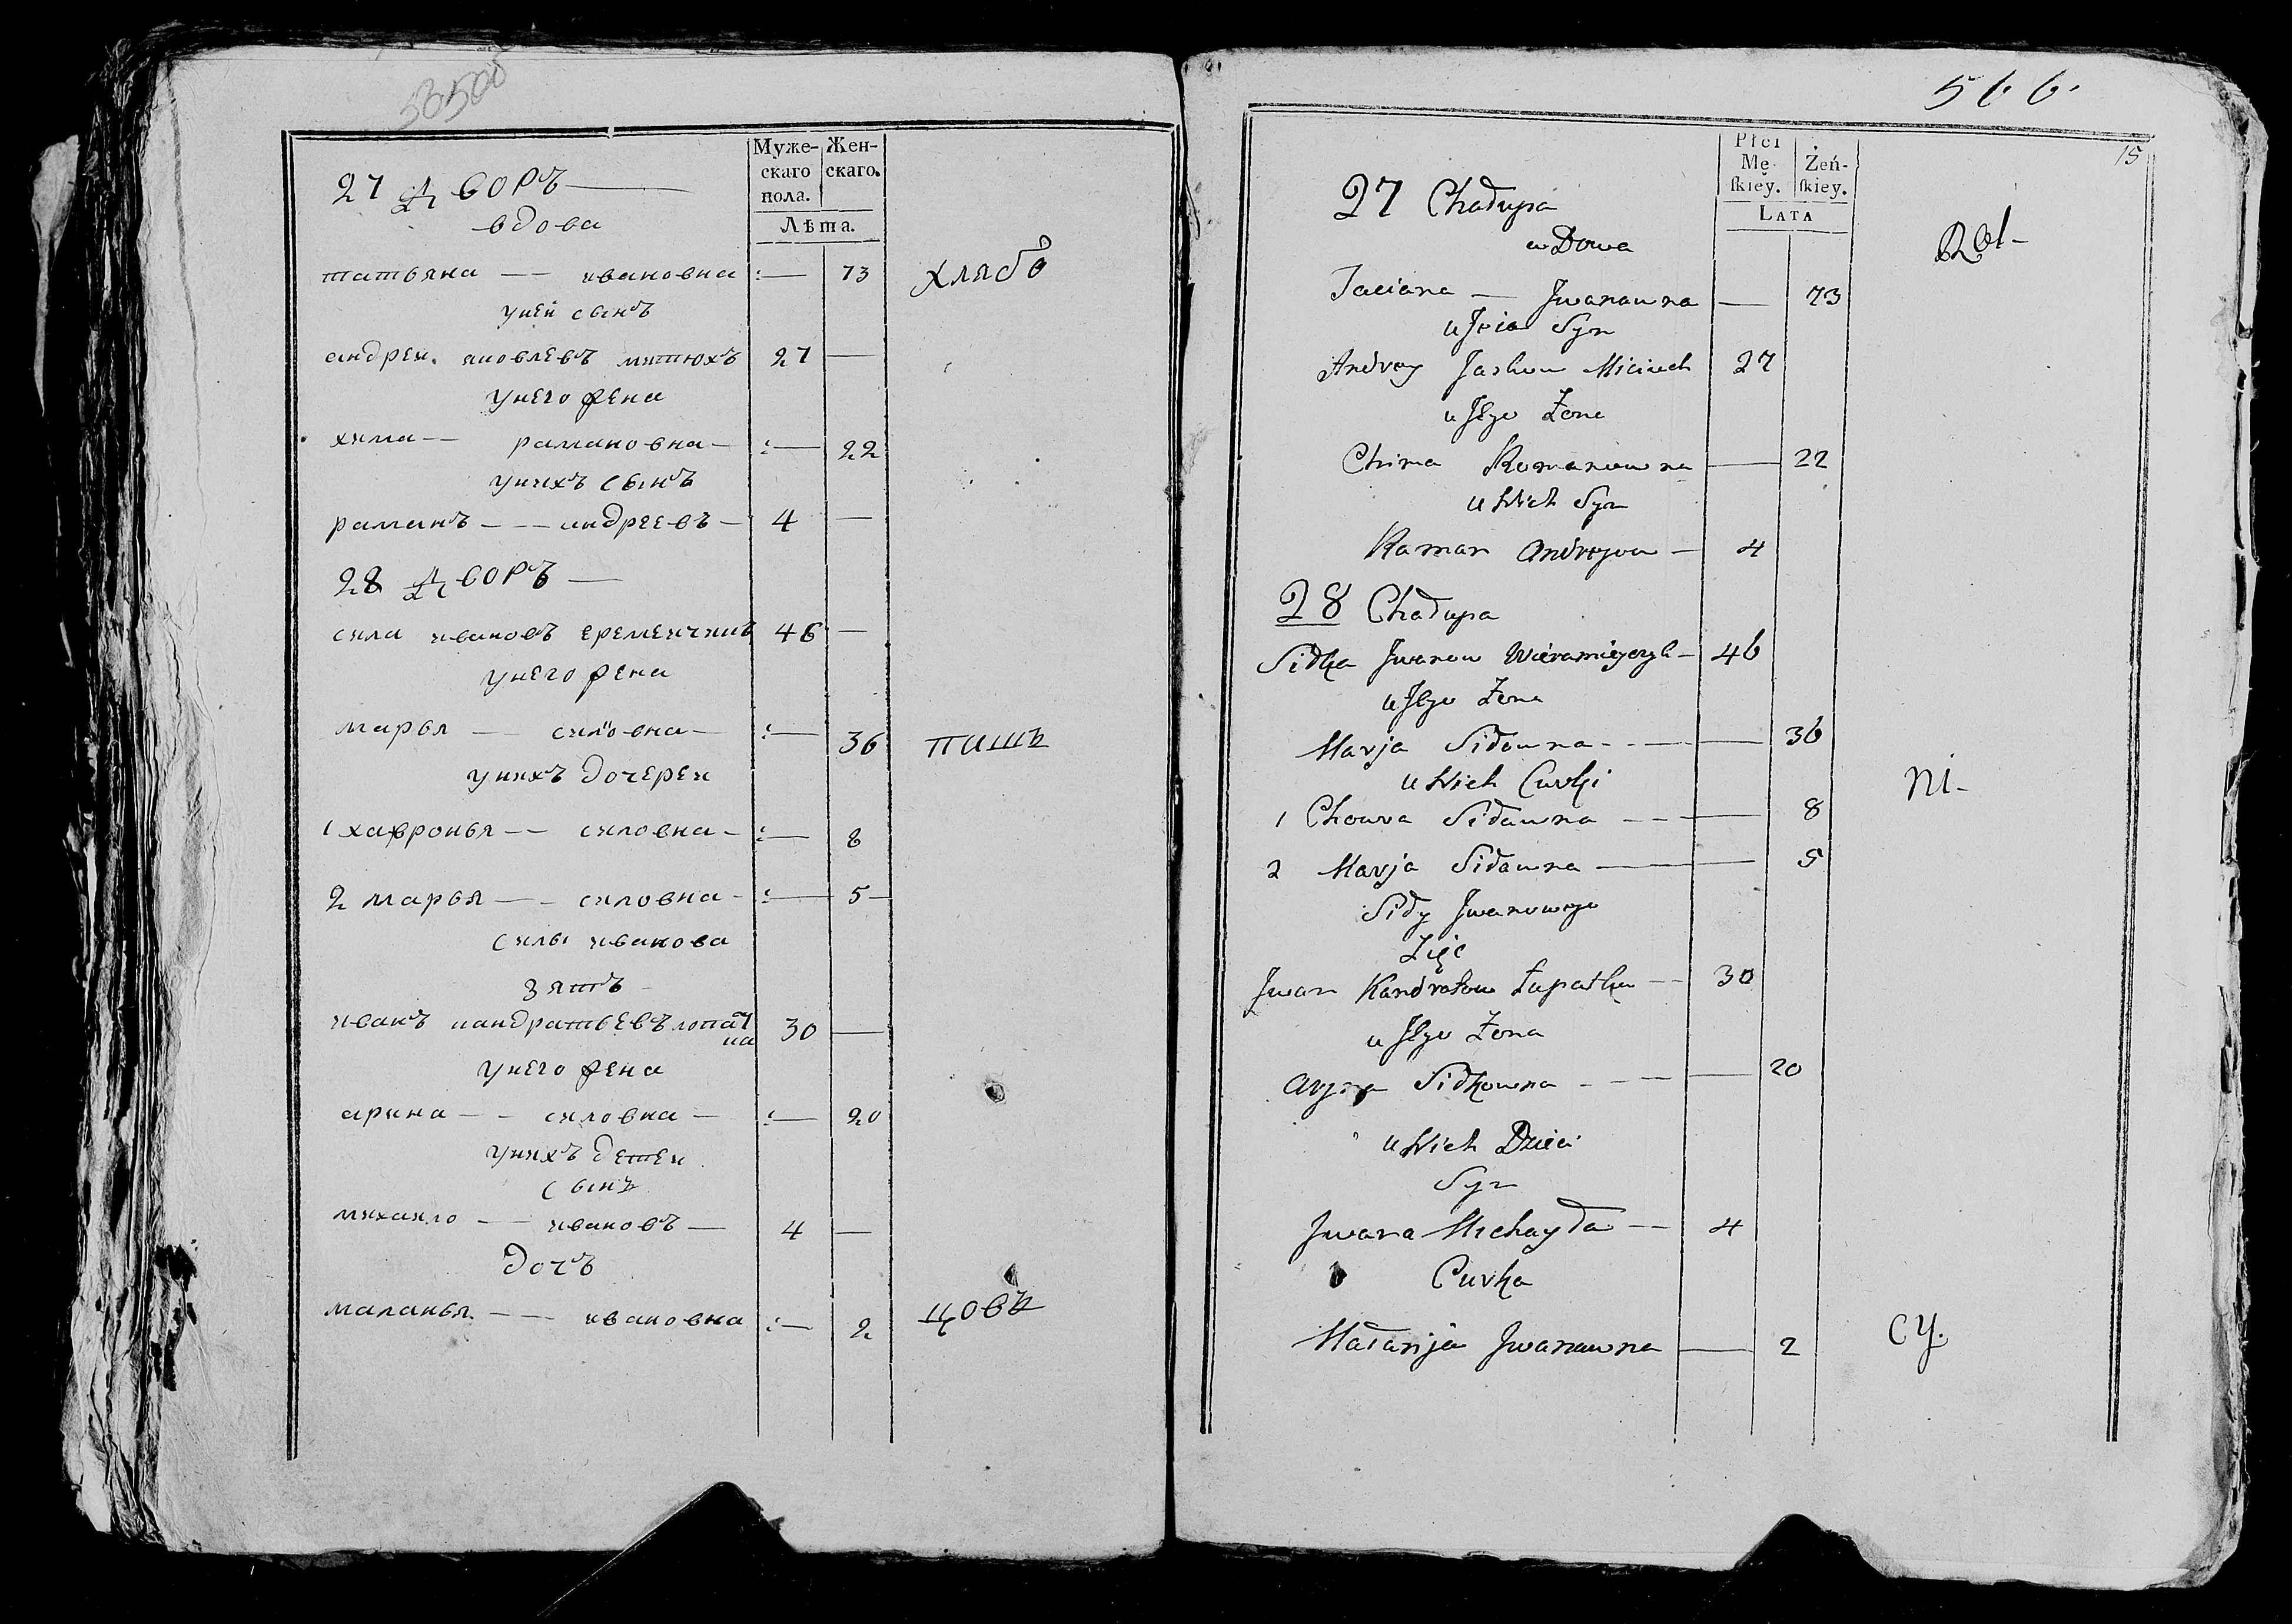 Муже-
скаго
пола.
Жен-
скаго.
Лѣта.
27 дворъ
вдова
татьяна — — ивановна :— 73
хлѣбо
уней сынъ
андреи яковлевъ митюхъ 27 —
унего жена
хима — рамановна — :— 22
унихъ сынъ
раманъ — — андреевъ — 4 —
28 дворъ —
сила ивановъ еременчикъ 46 —
унего жена
марья — силовна — :— 36
пашъ
унихъ дочерен
1 хавронья — — силовна — :— 8
2 марья — — силовна — :— 5 —
силы иванова
зять
иванъ кандратьевълопат
ка 30 —
унего жена
арина — — силовна — :— 20
унихъ детеи
сынъ
михаило — — ивановъ — 4 —
дочъ
маланья — — ивановна :— 2
цовъ
566.
15
Płci
Mę-
skiey.
Żeń-
skiey.
LATA
27 Chałupa
wDowa
Rol-
Taciana — Jwanawna — 73
u Jeia Syn
Andrey Jaskow Miciuch 27
u Jego Żona
Chima Romanowna — 22
u Nich Syn
Raman Andrejow — 4
28 Chałupa
Siłka Jwanow 46
u Jego Żona
Marja Siłowna — — 36
u Nich Curki
ni-
1 Chowra Siławna — — 8
2 Marja Siławna — 5
Siły Jwanowego
Zięć
Jwan Kandratow Łapatka — 30
u Jego Żona
Siłkowna — — 20
u Nich Dzieci
Syn
Jwana Michayła — 4
Curka
Małanja Jwanawna — 2
cy.